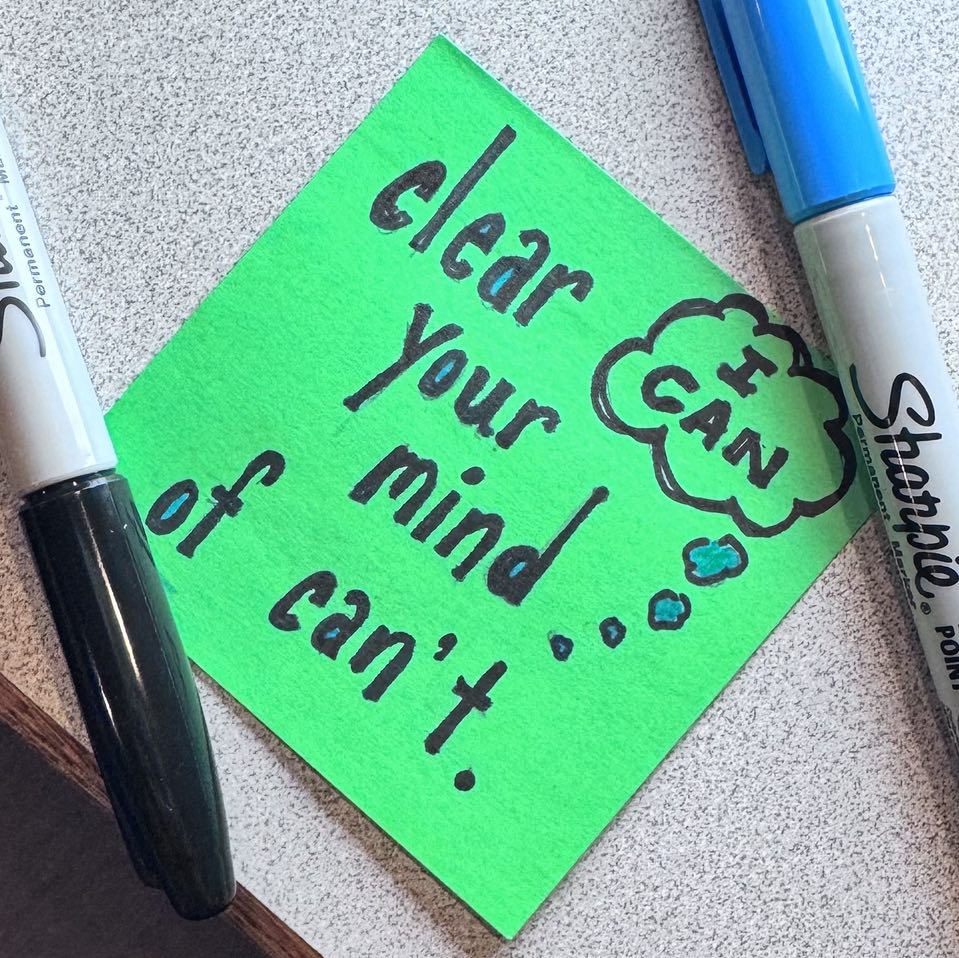 clear
your
mind
of can't.
I
CAN
Sharpie®
Permanent Marker
POINT
Permanent